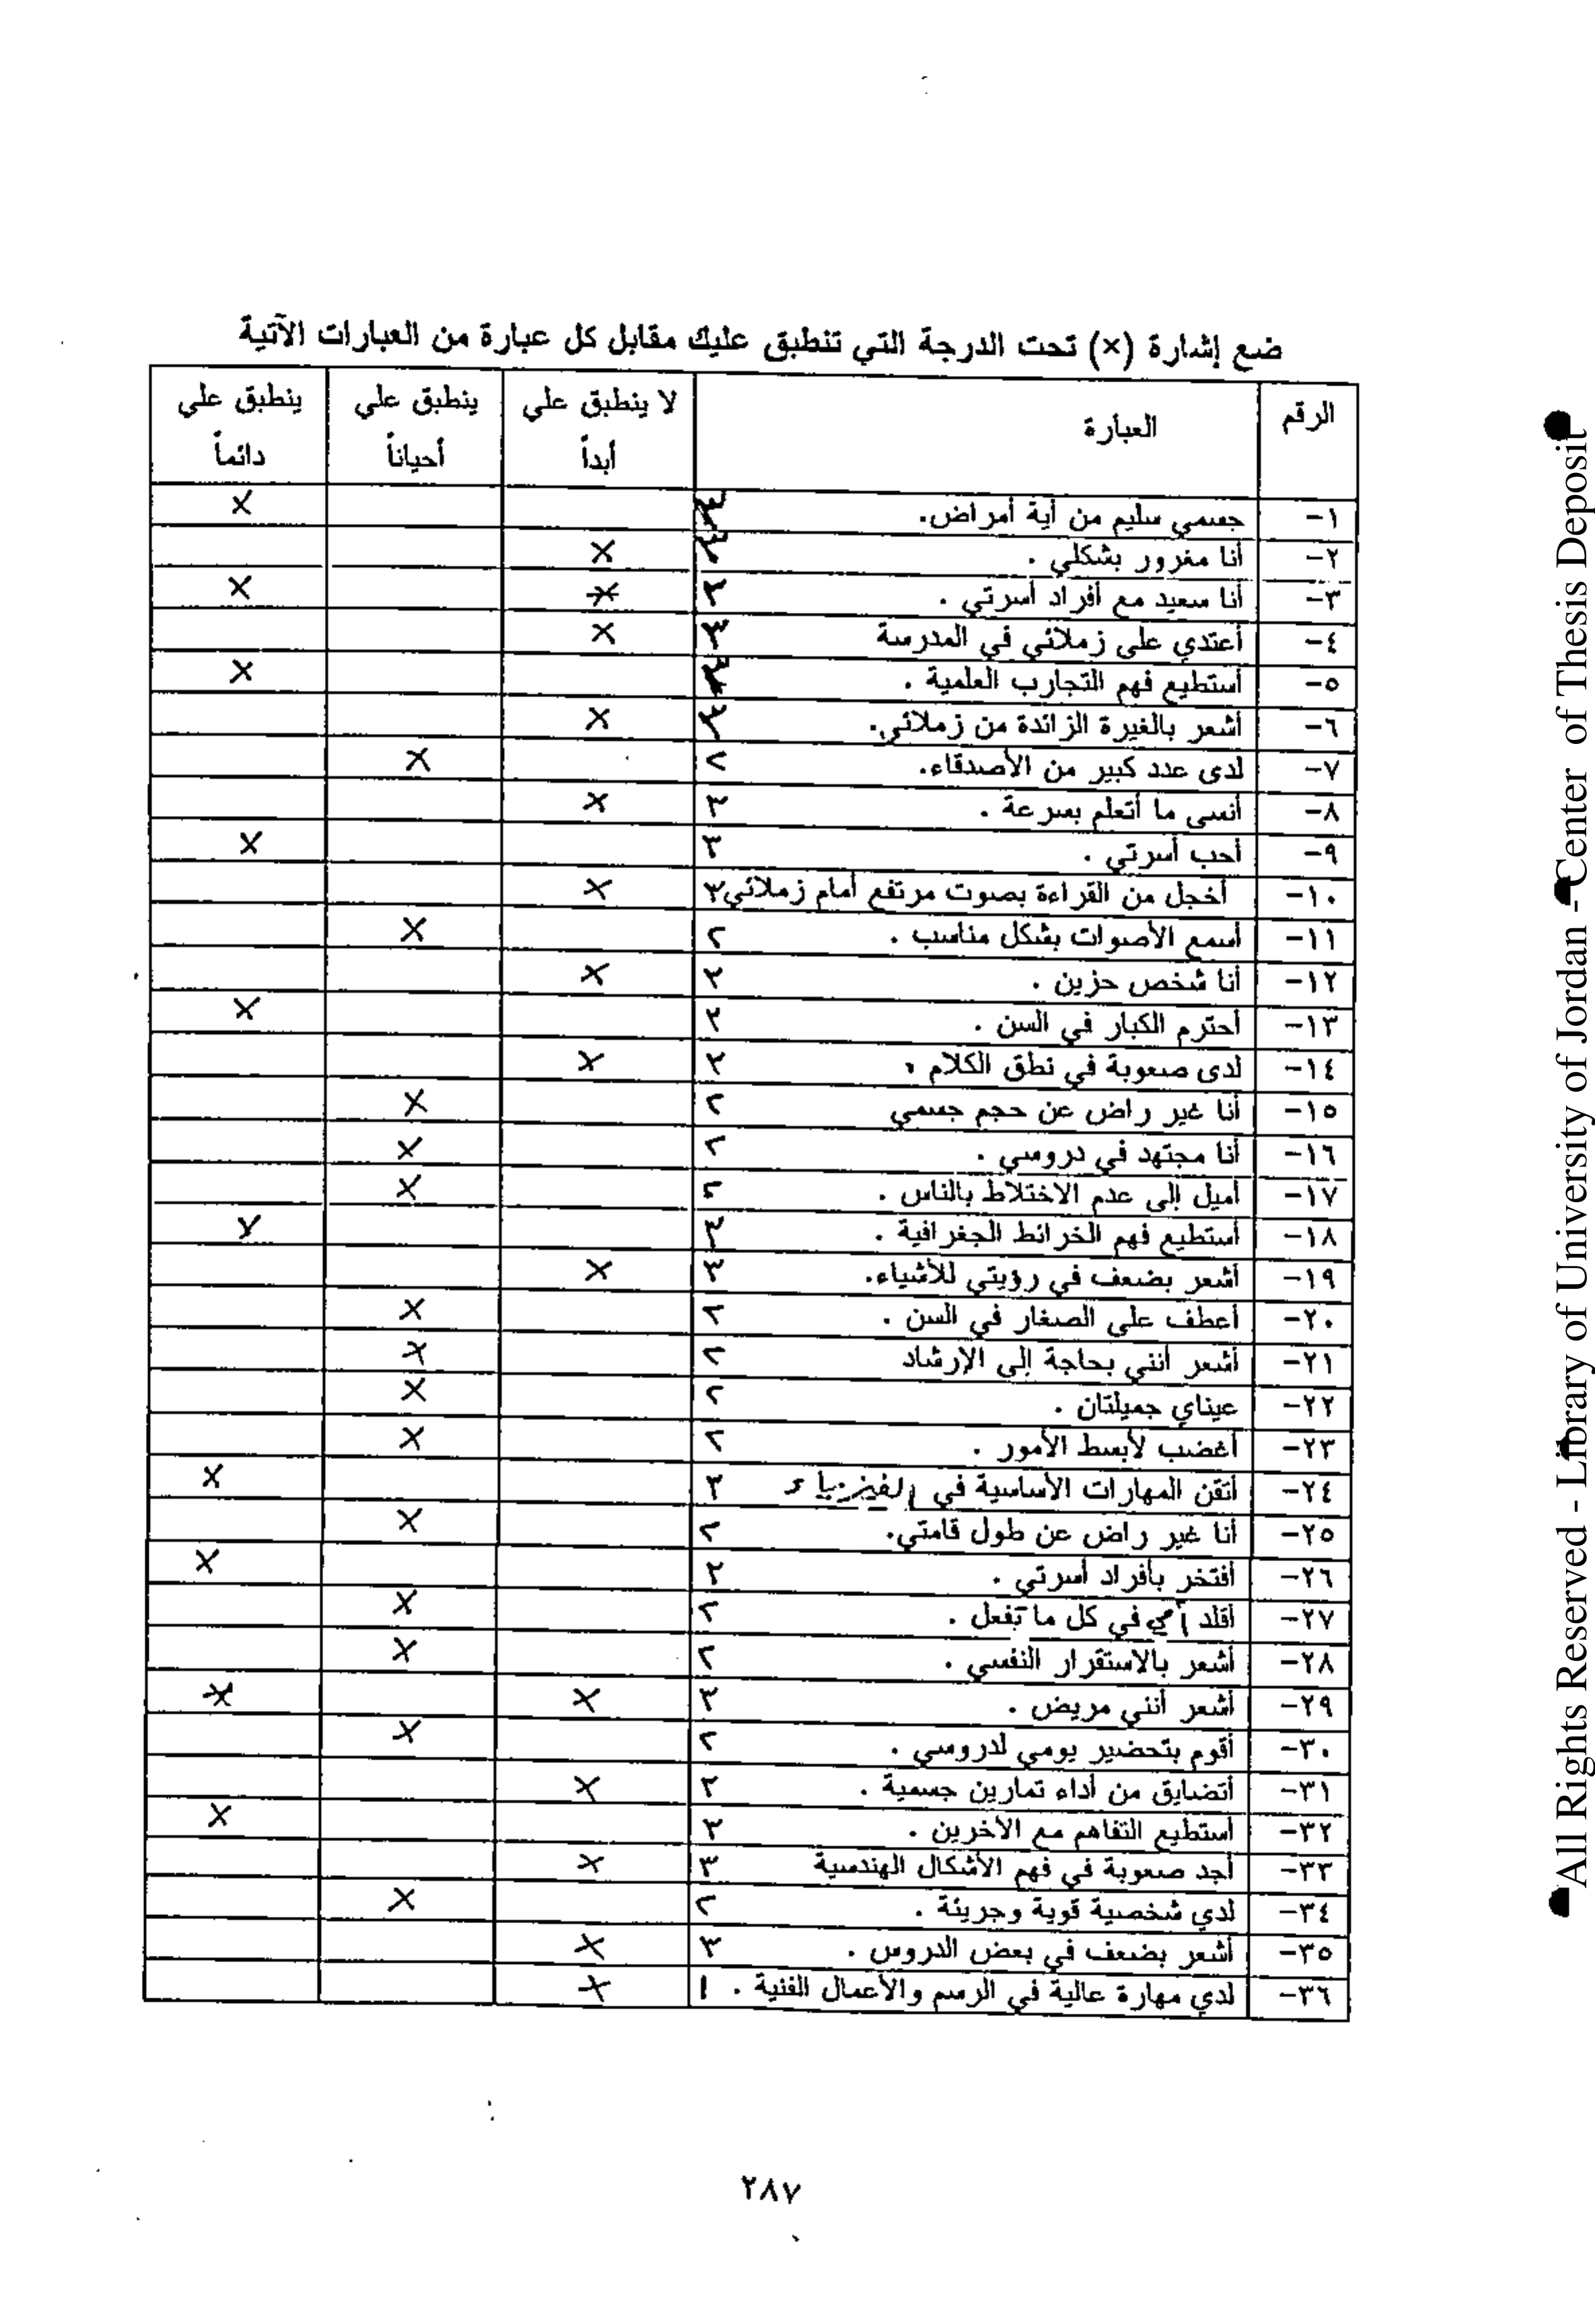 ضع إشارة (×) تحت الدرجة التي تنطبق عليك مقابل كل عبارة من العبارات الآتية
الرقم العبارة لا ينطبق علي أبداً ينطبق علي أحياناً ينطبق علي دائماً
١- جسمي سليم من أية أمراض. ٣ ×
٢- أنا مغرور بشكلي . ٣ ×
٣- أنا سعيد مع أفراد أسرتي . ٣ × ×
٤- أعتدي على زملائي في المدرسة ٣ ×
٥- أستطيع فهم التجارب العلمية . ٣ ×
٦- أشعر بالغيرة الزائدة من زملائي. ٣ ×
٧- لدى عدد كبير من الأصدقاء. ٢ ×
٨- أنسى ما أتعلم بسرعة . ٣ ×
٩- أحب أسرتي . ٣ ×
١٠- أخجل من القراءة بصوت مرتفع أمام زملائي ٣ ×
١١- أسمع الأصوات بشكل مناسب . ٢ ×
١٢- أنا شخص حزين . ٣ ×
١٣- أحترم الكبار في السن . ٣ ×
١٤- لدى صعوبة في نطق الكلام . ٣ ×
١٥- أنا غير راض عن حجم جسمي ٢ ×
١٦- أنا مجتهد في دروسي . ٢ ×
١٧- أميل إلى عدم الاختلاط بالناس . ٢ ×
١٨- أستطيع فهم الخرائط الجغرافية . ٣ ×
١٩- أشعر بضعف في رؤيتي للأشياء. ٣ ×
٢٠- أعطف على الصغار في السن . ٢ ×
٢١- أشعر أنني بحاجة إلى الإرشاد ٢ ×
٢٢- عيناي جميلتان . ٢ ×
٢٣- أغضب لأبسط الأمور . ٢ ×
٢٤- أتقن المهارات الأساسية في الفيزياء ٣ ×
٢٥- أنا غير راض عن طول قامتي. ٢ ×
٢٦- أفتخر بأفراد أسرتي . ٣ ×
٢٧- أقلد أمي في كل ما تفعل . ٢ ×
٢٨- أشعر بالاستقرار النفسي . ٢ ×
٢٩- أشعر أنني مريض . ٣ × ×
٣٠- أقوم بتحضير يومي لدروسي . ٢ ×
٣١- أتضايق من أداء تمارين جسمية . ٣ ×
٣٢- أستطيع التفاهم مع الآخرين . ٣ ×
٣٣- أجد صعوبة في فهم الأشكال الهندسية ٣ ×
٣٤- لدي شخصية قوية وجريئة . ٢ ×
٣٥- أشعر بضعف في بعض الدروس . ٣ ×
٣٦- لدي مهارة عالية في الرسم والأعمال الفنية . ١ ×
٢٨٧
All Rights Reserved - Library of University of Jordan - Center of Thesis Deposit